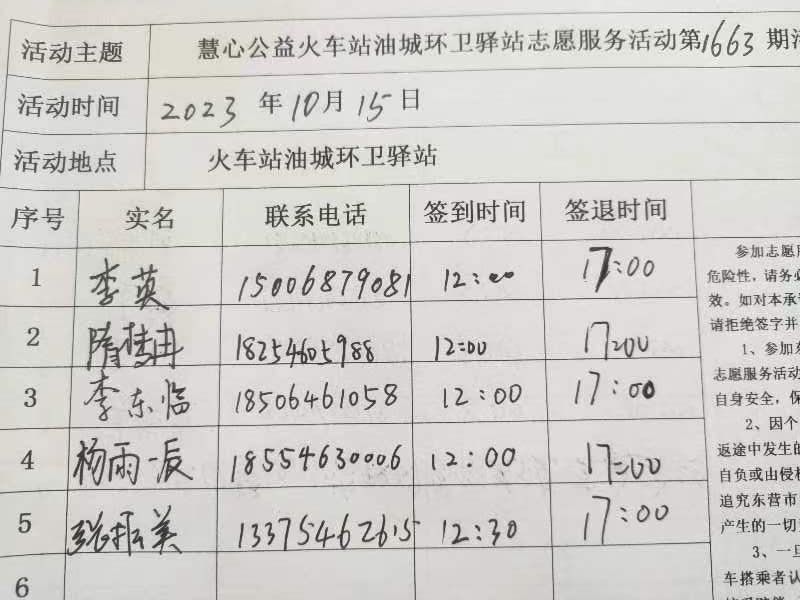 活动主题 慧心公益火车站油城环卫驿站志愿服务活动第1663期活
活动时间 2023年10月15日
活动地点 火车站油城环卫驿站
序号 实名 联系电话 签到时间 签退时间
1 李英 15006879081 12:00 17:00
2 隋 冉 18254605988 12:00 17:00
3 李东临 18506461058 12:00 17:00
4 杨雨辰 18554630006 12:00 17:00
5 张振美 13375462615 12:30 17:00
6
参加志愿服
危险性，请务必
效。如对本承诺
请拒绝签字并
1、参加东
志愿服务活动
自身安全，保
2、因个
返途中发生的
自负或由侵权
追究东营市
产生的一切
3、一旦
车搭乘者认